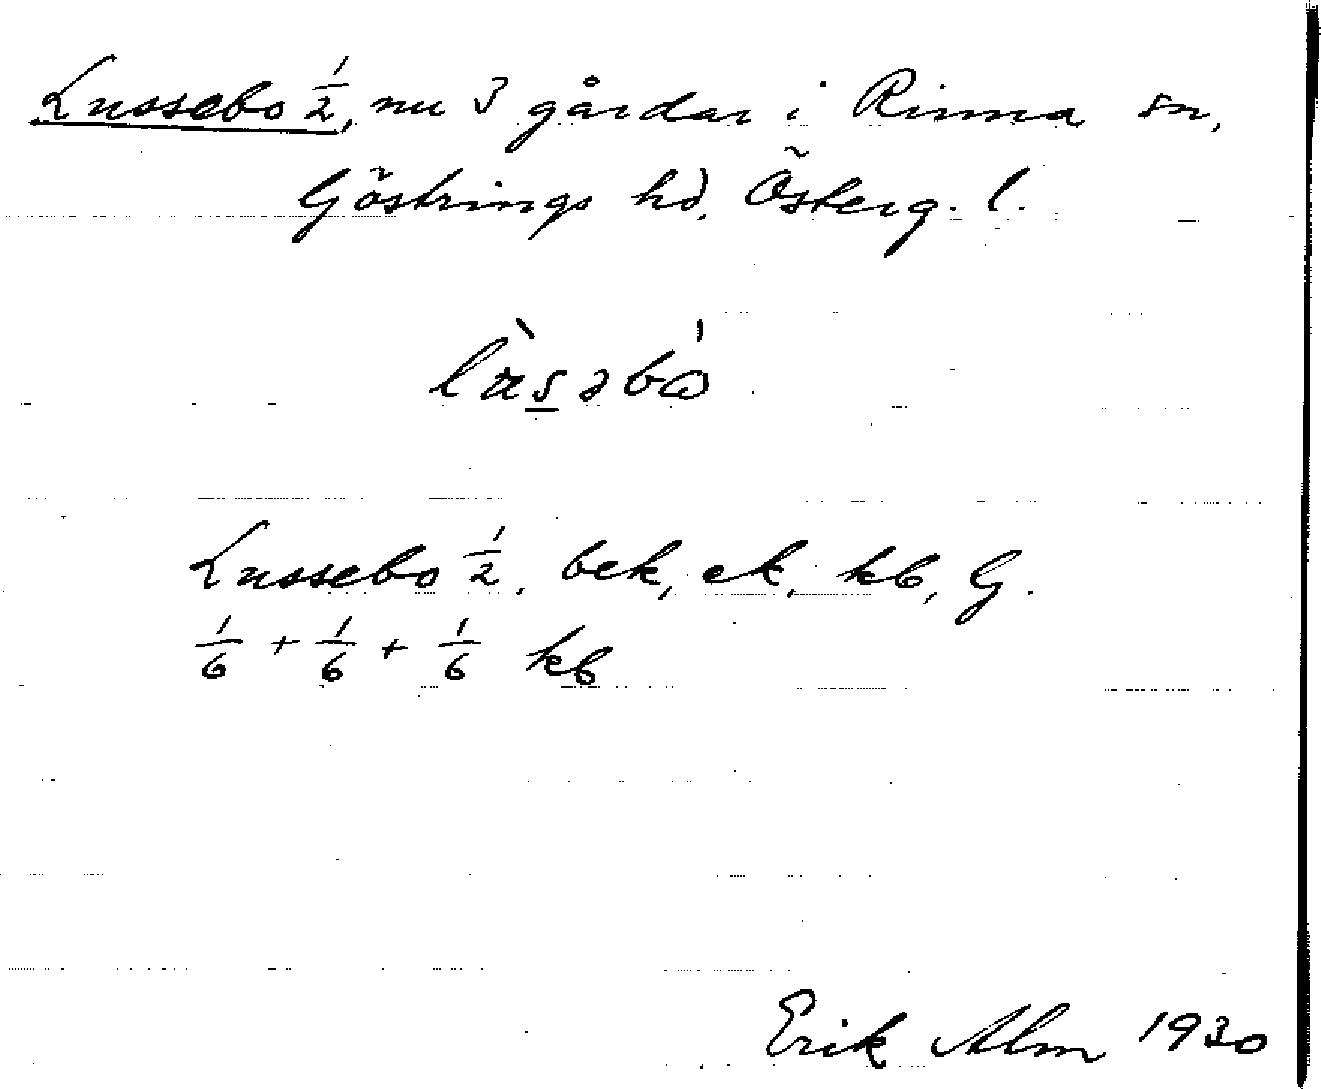 Lussebo 1/2, nu 3 gårdar i Rinna sn,
Göstrings hd, Österg. l.
Lussebo 1/2, bek, ek, kb, G.
1/6 + 1/6 + 1/6 kb
Erik Alm 1930